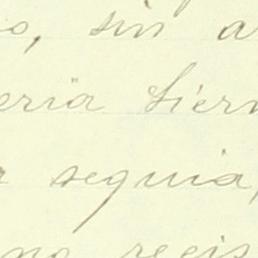 o, sin a
ería tiern
a seguia,
no regis